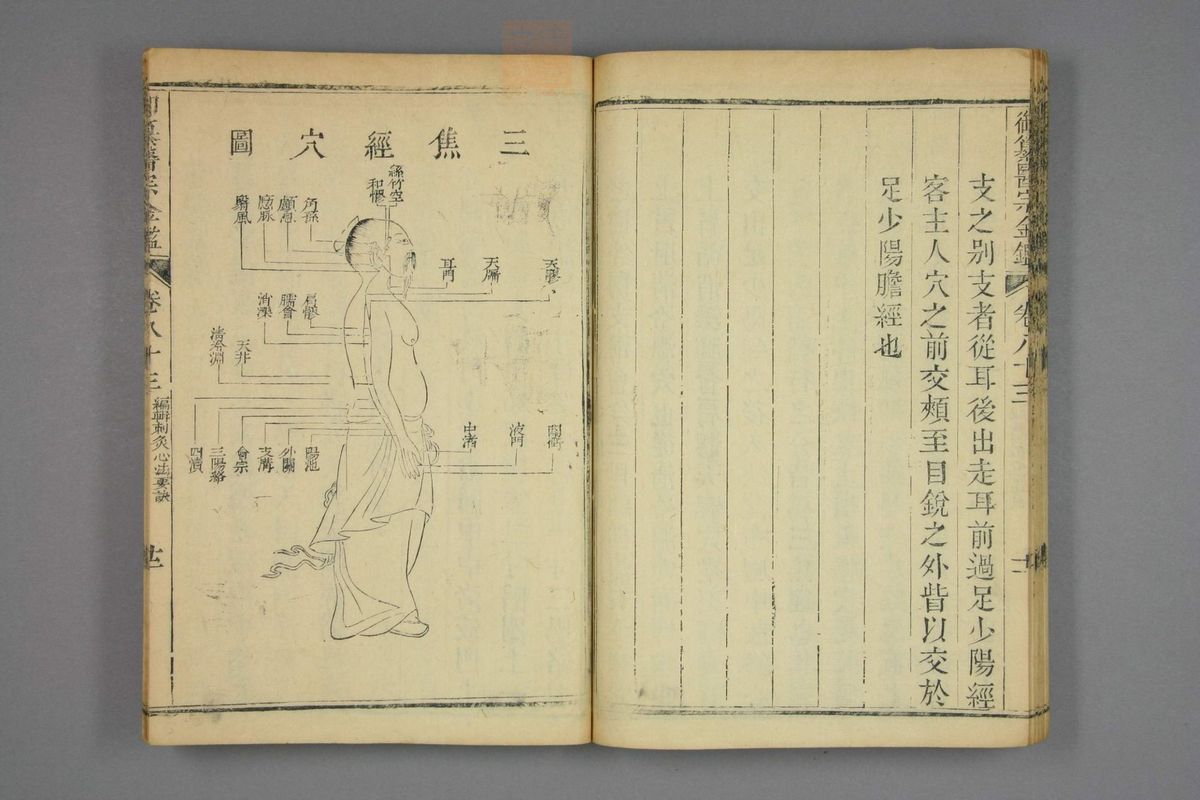 御纂醫宗金鑑
卷八十三
支之别支者從耳後出走耳前過足少陽經
客主人穴之前交頰至目銳之外眥以交於
足少陽膽經也
三焦經穴圖
絲竹空
和髎
角孫
顱息
瘈脉
翳風
天髎
天牖
耳門
肩髎
臑會
消濼
天井
清冷淵
關衝
液門
中渚
陽池
外關
支溝
會宗
三陽絡
四瀆
御纂醫宗金鑑
卷八十三
編輯刺灸心法要訣